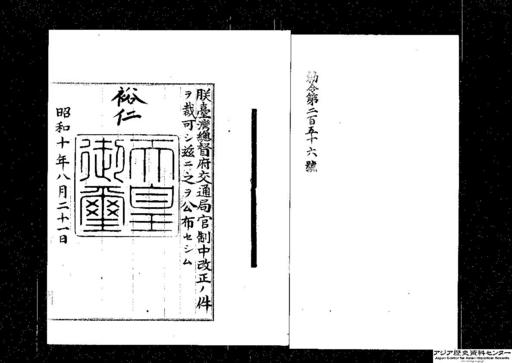 勅令第二百五十六號
朕臺灣總督府交通局官制中改正ノ件
ヲ裁可シ茲ニ之ヲ公布セシム
裕仁
天皇御璽
昭和十年八月二十一日
アジア歴史資料センター
Japan Center for Asian Historical Records